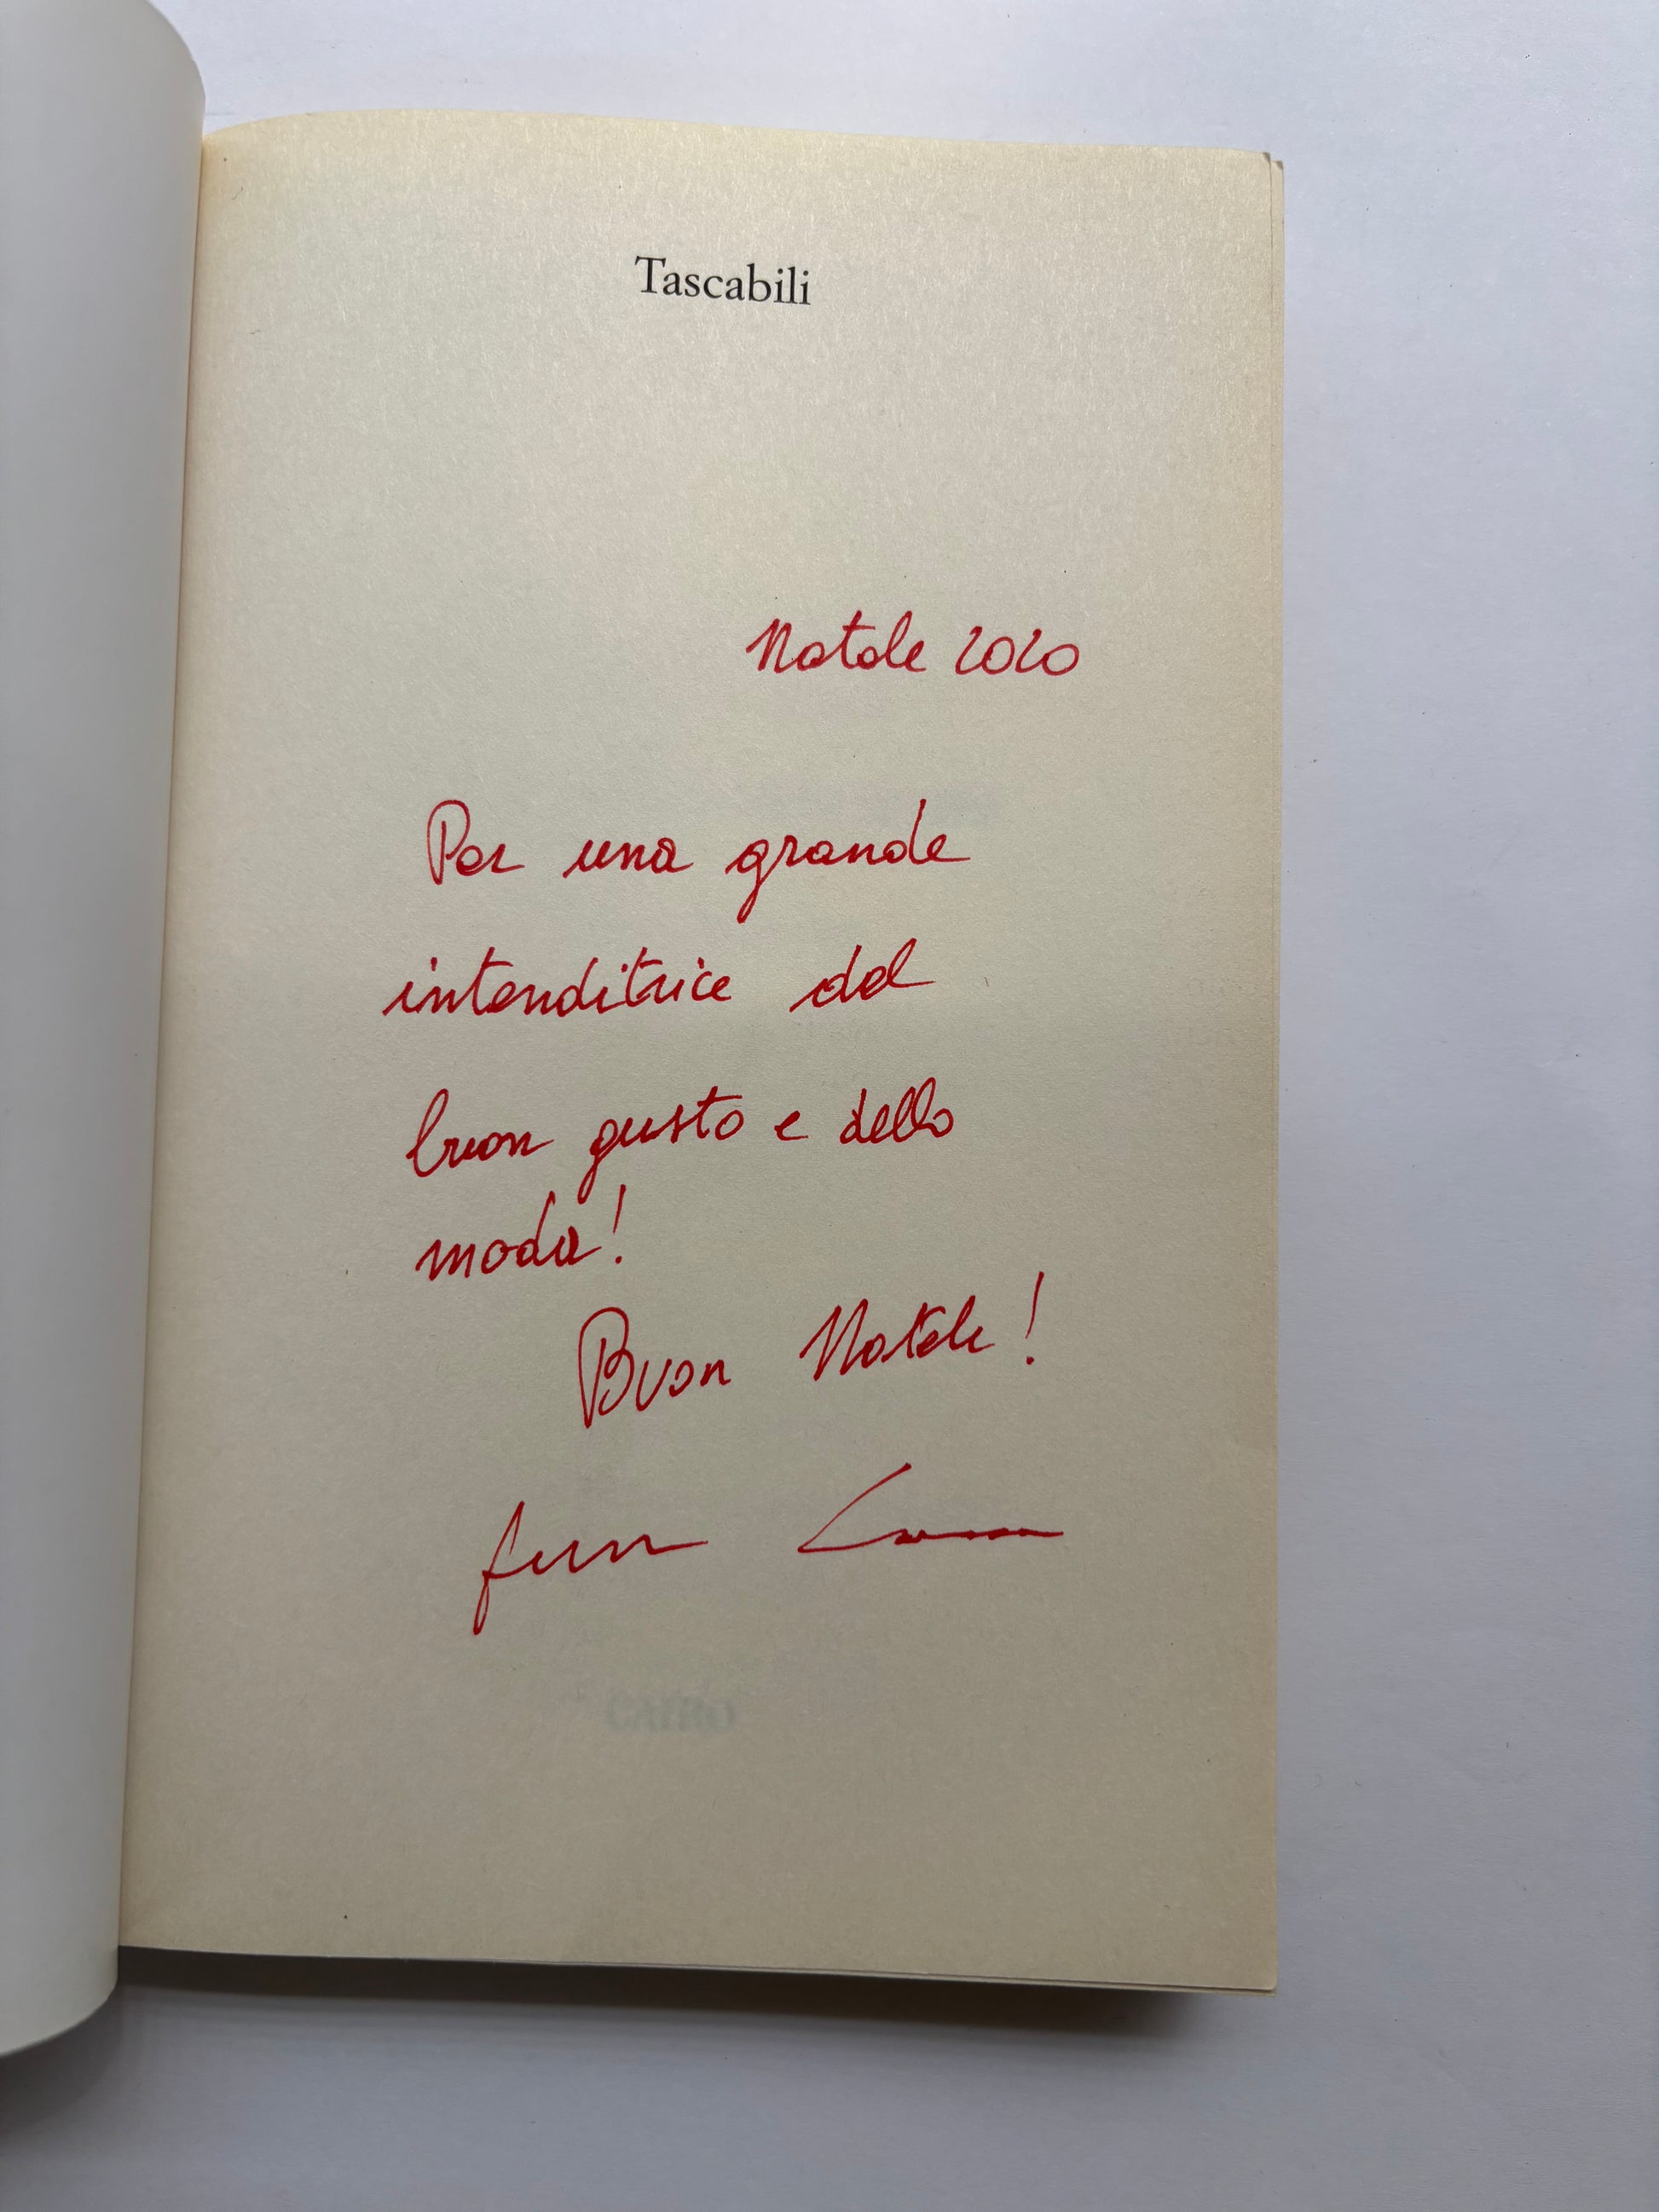 Tascabili
Natale 2020
Per una grande
intenditrice del
buon gusto e della
moda!
Buon Natale!
CAIRO